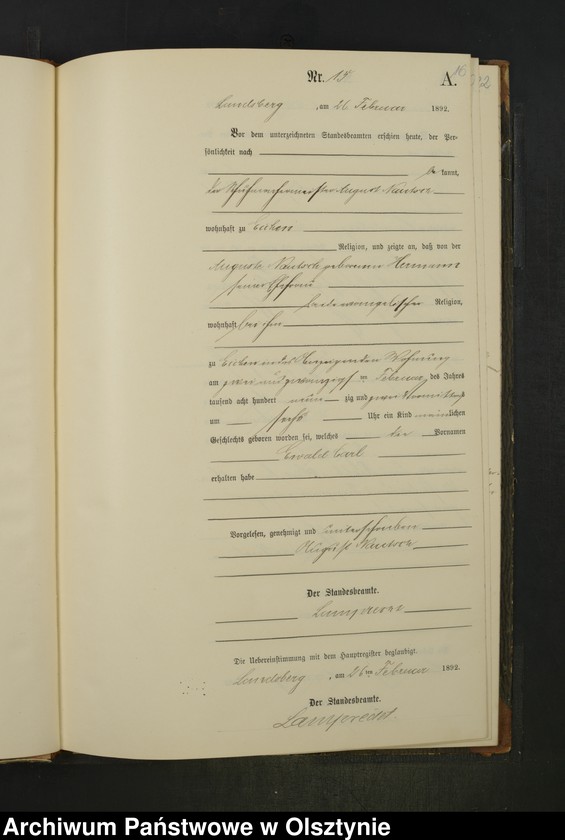 Nr. 15
A.
16
22
Landsberg, am 26 Februar 1892.
Vor dem unterzeichneten Standesbeamten erschien heute, der Per-
sönlichkeit nach
kannt,
der Schuhmachermeister August
wohnhaft zu
Religion, und zeigte an, daß von der
Auguste geborenen Hermann
seiner Ehefrau
beide evangelischer Religion,
wohnhaft bei ihm
zu in des Wohnung
am zwei und zwanzigsten Februar des Jahres
tausend acht hundert neun zig und zwei Vormittags
um sechs Uhr ein Kind männlichen
Geschlechts geboren worden sei, welches die Vornamen
Ewald Carl
erhalten habe
Vorgelesen, genehmigt und unterschrieben
August
Der Standesbeamte.
Lamprecht
Die Uebereinstimmung mit dem Hauptregister beglaubigt.
Landsberg, am 26ten Februar 1892.
Der Standesbeamte.
Lamprecht.
Archiwum Państwowe w Olsztynie